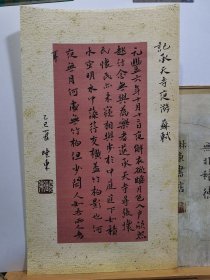 記承天寺夜游 蘇軾
元豐六年十月十二日夜解衣欲睡月色入户欣然
起行念無與為樂者遂至承天寺尋張懷
民懷民亦未寢相與步於中庭庭下如積
水空明水中藻荇交橫蓋竹柏影也何
夜無月何處無竹柏但少閒人如吾兩人者
耳